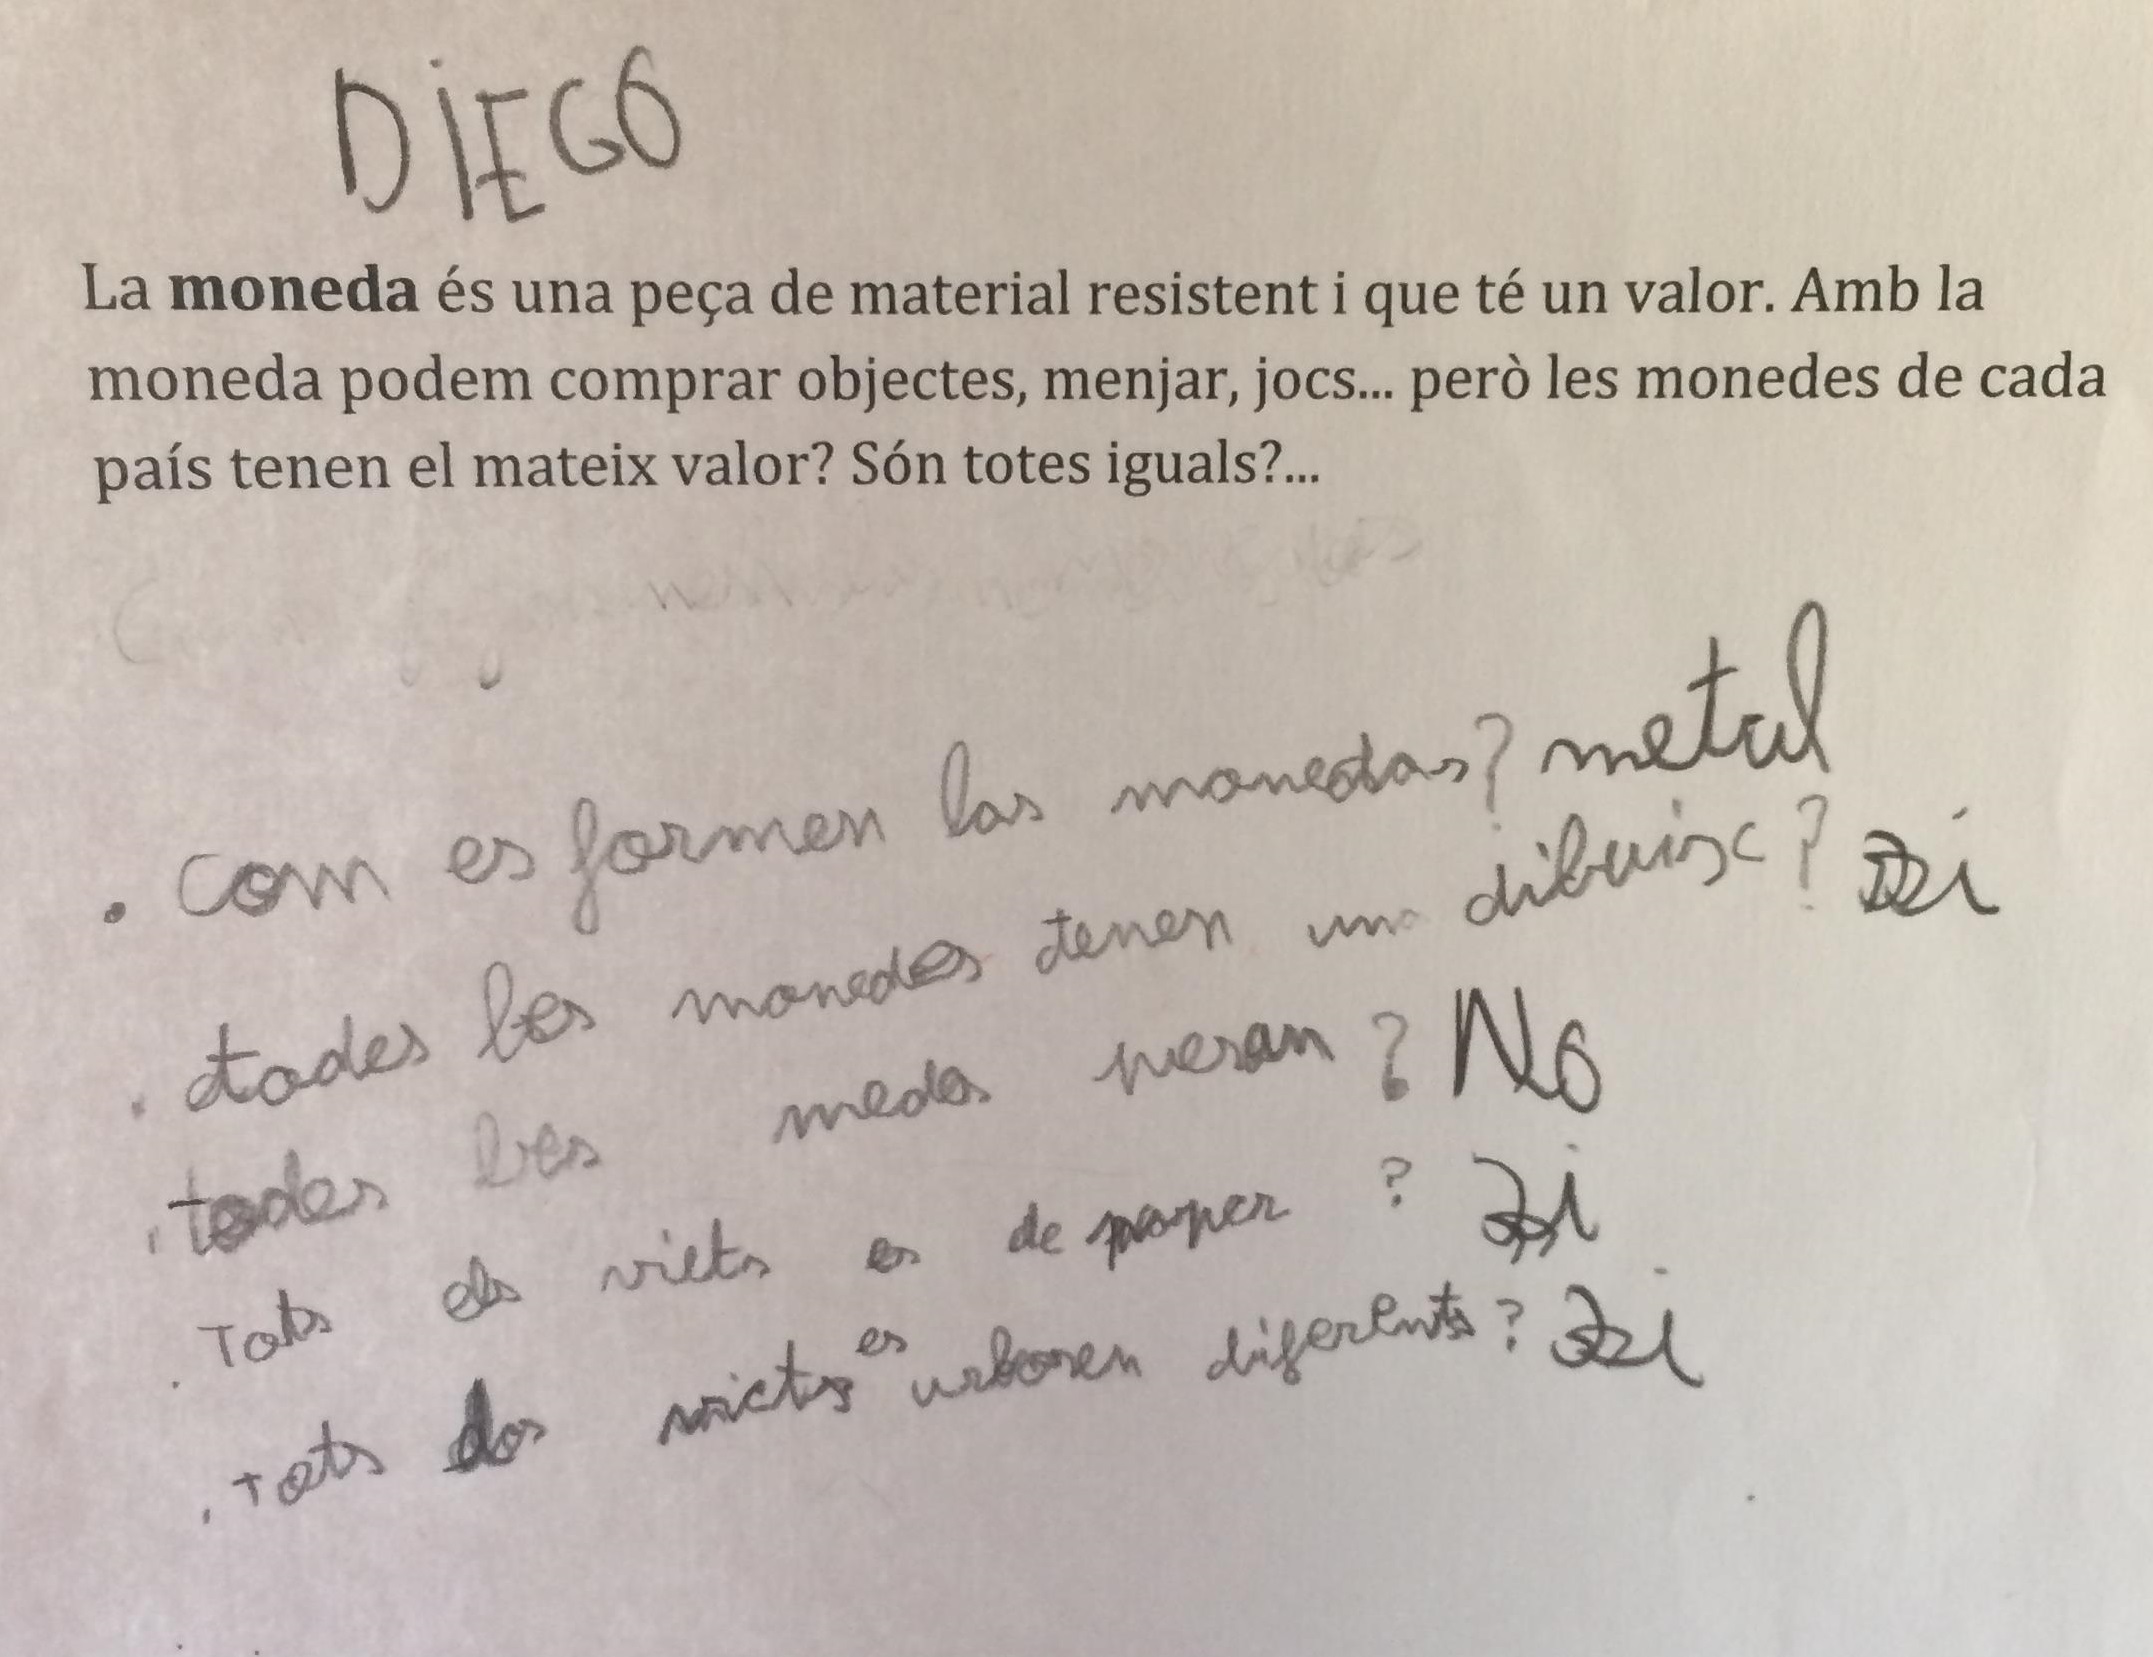 DiEGO
La moneda és una peça de material resistent i que té un valor. Amb la
moneda podem comprar objectes, menjar, jocs... però les monedes de cada
país tenen el mateix valor? Són totes iguals?...
. com es formen las monedas? metal
. todes les monedes tenen un dibuisc? si
. todes les medes pesan? No
. Tots els viets es de paper? Si
. Tots dos es diferents? Si